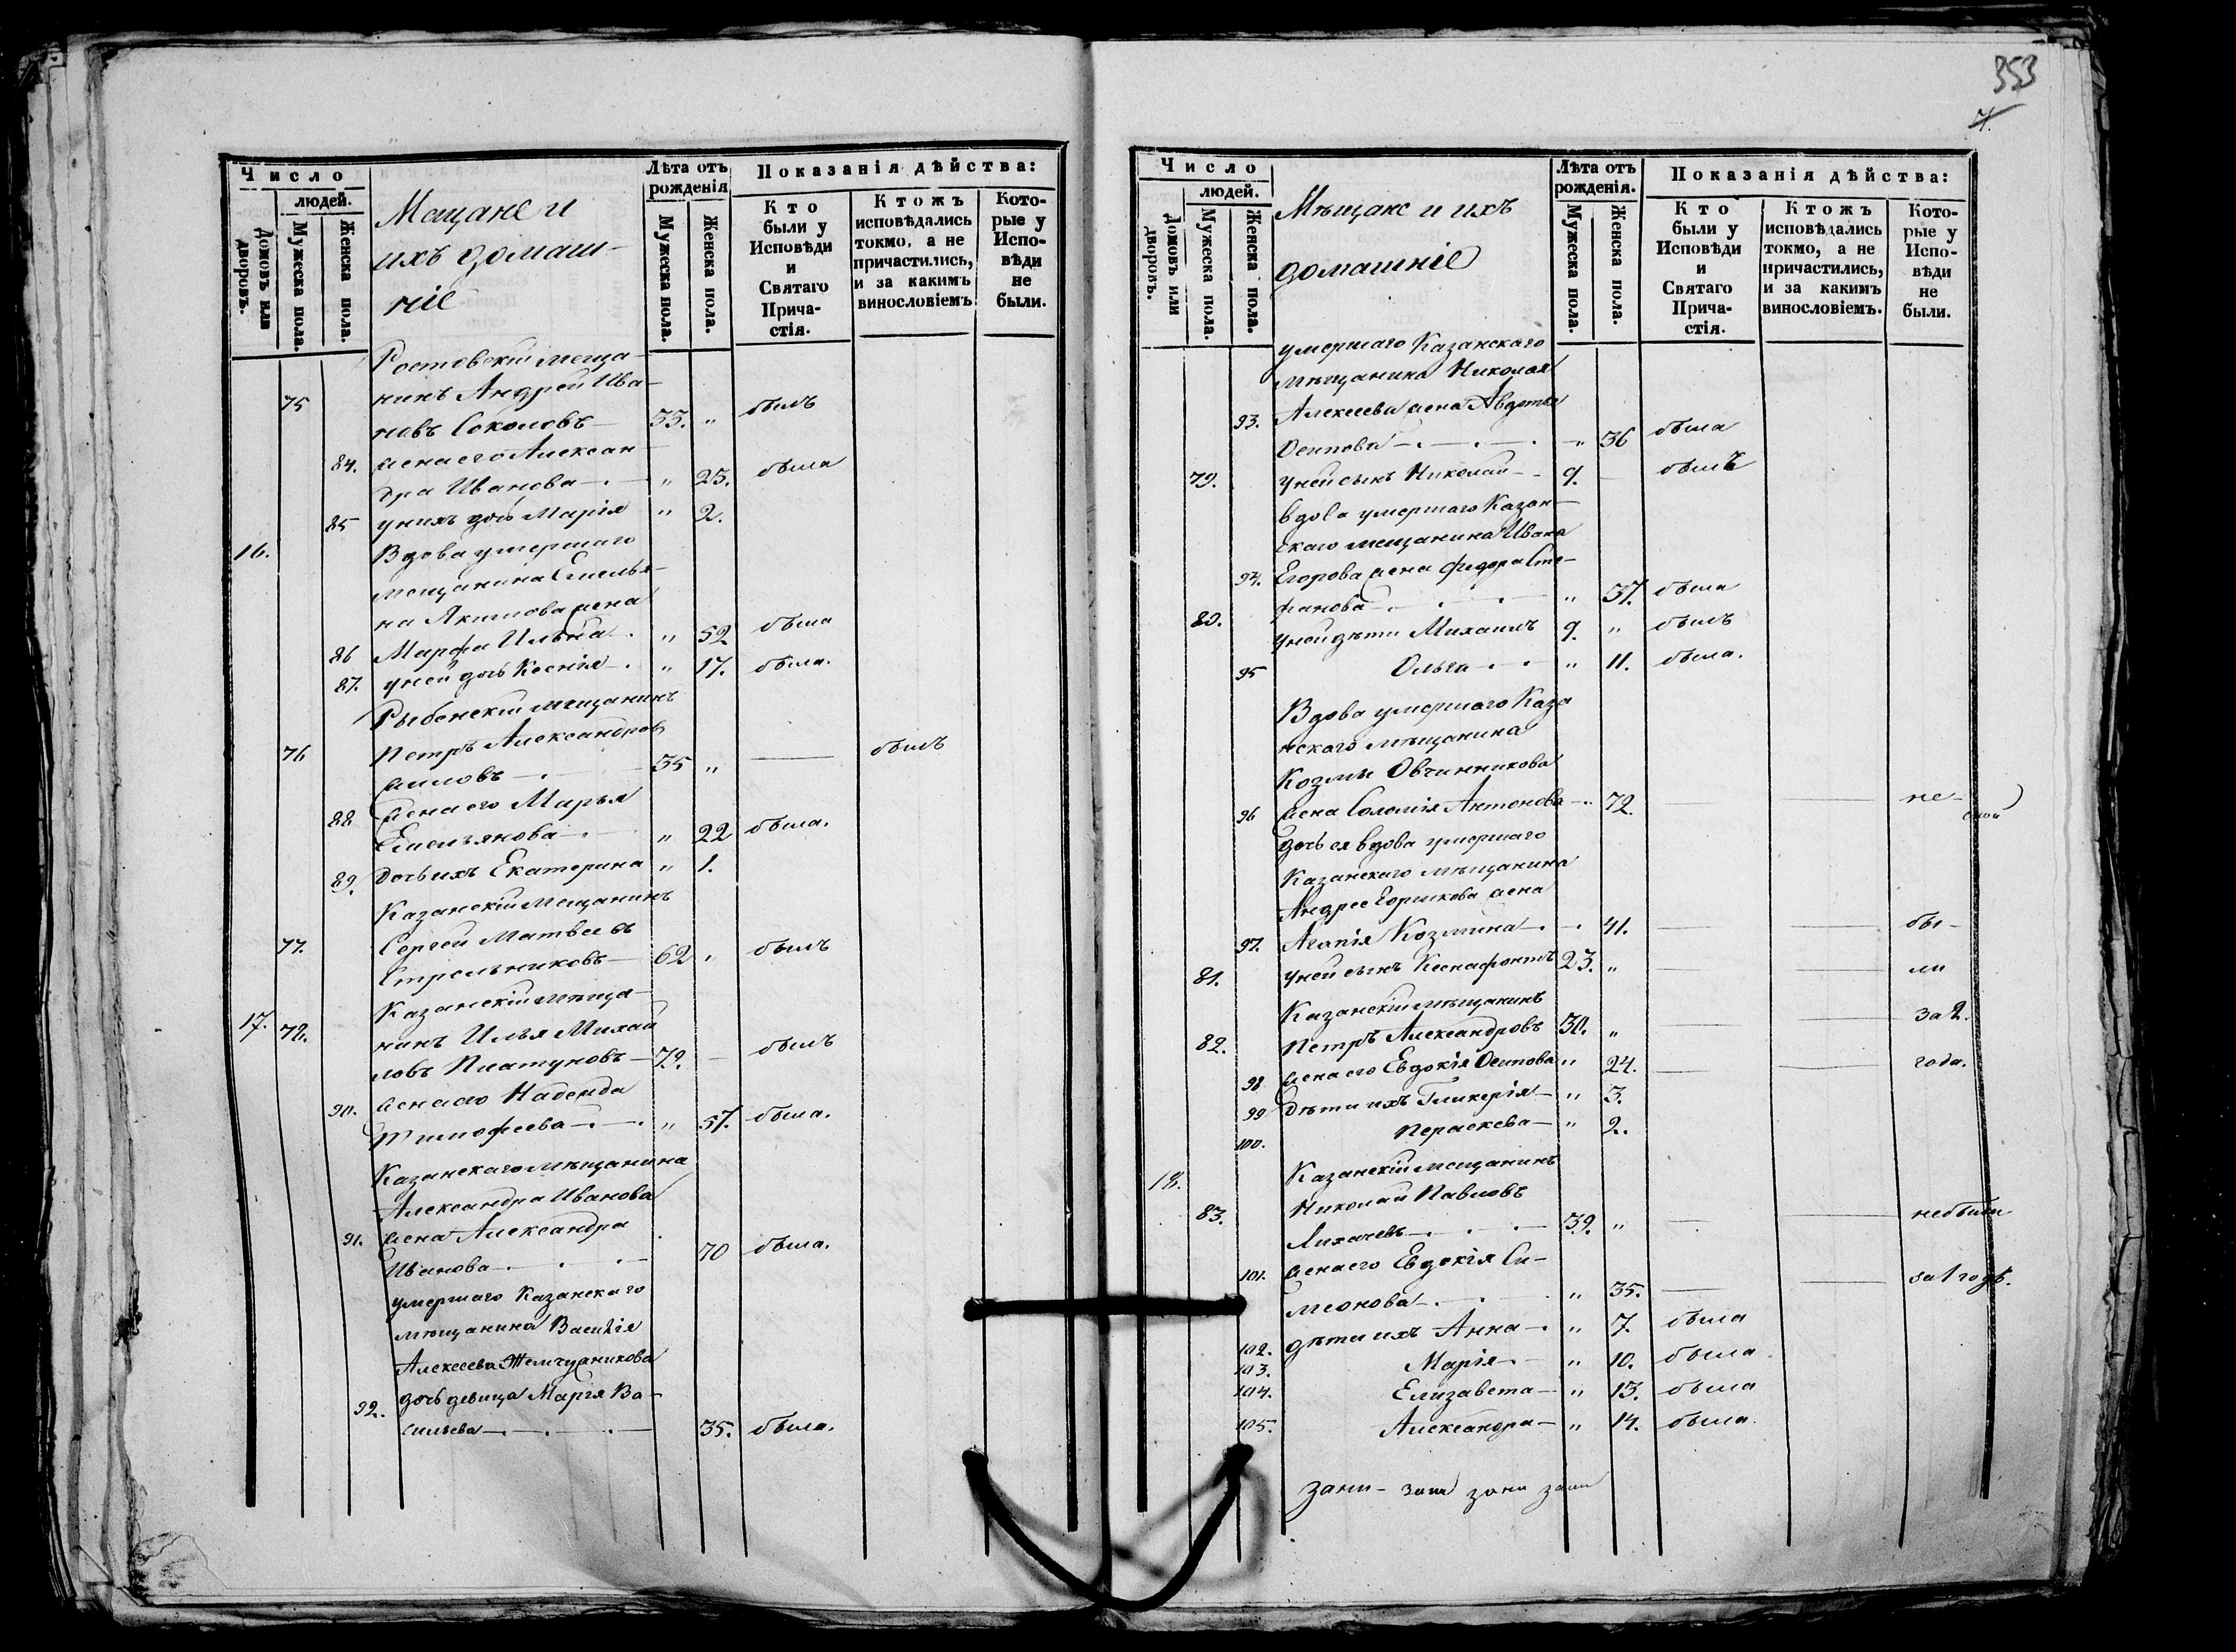 353
7.
Число
людей.
Домовъ или дворовъ.
Мужеска пола.
Женска пола.
Мещане и
ихъ домаш-
ніе
Лѣта отъ рожденія
Мужеска пола.
Женска пола.
Показанія дѣйства:
Кто были у Исповѣди и Святаго Прича-стія.
Ктожъ исповѣдались токмо, а не причастились, и за какимъ винословіемъ
Кото-рые у Испо-вѣди не были.
Ростовскій меща-
75 нинъ Андрей Ива-
новъ Соколовъ 33. " былъ
84. жена его Алексан-
дра Иванова " 25. была
85 у нихъ дочь Марія " 2.
16. Вдова умершаго
мещанина Емелья-
на Якимова жена
86 Марфа Ильина " 52 была
87. у ней дочь Ксенія " 17. была.
Рыбенскій мещанинъ
76 Петръ Александров
35 " — былъ
88 жена его Марья
Емельянова " 22 была.
89. Дочь ихъ Екатерина " 1.
Казанскій Мещанинъ
77. Сергей Матвеевъ
Стрельниковъ 62 " былъ
Казанскій мѣща-
17. 78. нинъ Илья Михай
ловъ Платуновъ 72. — былъ
90. жена его Надежда
Тимофеева " 57. была.
Казанскаго мѣщанина
Александра Иванова
91. жена Александра
Иванова 70 была.
умершаго Казанскаго
мѣщанина Василія
Алексеева Жемчужникова
92. дочь девица Марія Ва-
сильева 35. была.
Число
людей.
Домовъ или дворовъ.
Мужеска пола.
Женска пола.
Мѣщане и ихъ
домашніе
Лѣта отъ рожденія.
Мужеска пола.
Женска пола.
Показанія дѣйства:
Кто были у Исповѣди и Святаго Прича-стія.
Ктожъ исповѣдались токмо, а не причастились, и за какимъ винословіемъ.
Кото-рые у Испо-вѣди не были.
умершаго Казанскаго
мѣщанина Николая
93. Алексеева жена Авдотья
Осипова " 36 была
79. у ней сынъ Николай 9. — былъ
вдова умершаго Казан-
скаго мещанина Ивана
94. Егорова жена Федора Сте-
фанова " 37. была
80. у ней дети Михаилъ 9. " былъ
95 Ольга " 11. была.
Вдова умершаго Каза
нскаго мѣщанина
Козмы Овчинникова
96 жена Соломія Антонова 72. — — не-
дочь ея вдова умершаго
Казанскаго мѣщанина
Андрея Горшкова жена
97. Агапія Козмина 41. — — бы-
81. у ней сынъ Ксенофонтъ 23. " — — ли
Казанскій мѣщанинъ
82. Петръ Александровъ 30. " — — за 2.
98 жена его Евдокія Осипова " 24. — — года.
99 Дѣти ихъ Гликерія " 3.
100. Параскева " 2.
18. Казанскій мещанинъ
83. Николай Павловъ
Лихачевъ 39. " — — небыли
101. жена его Евдокія Си-
меонова " 35. — — за 1 годъ.
102. дѣти ихъ Анна " 7. была
103. Марія " 10. была
104. Елизавета " 13. была
105. Александра " 14. была.